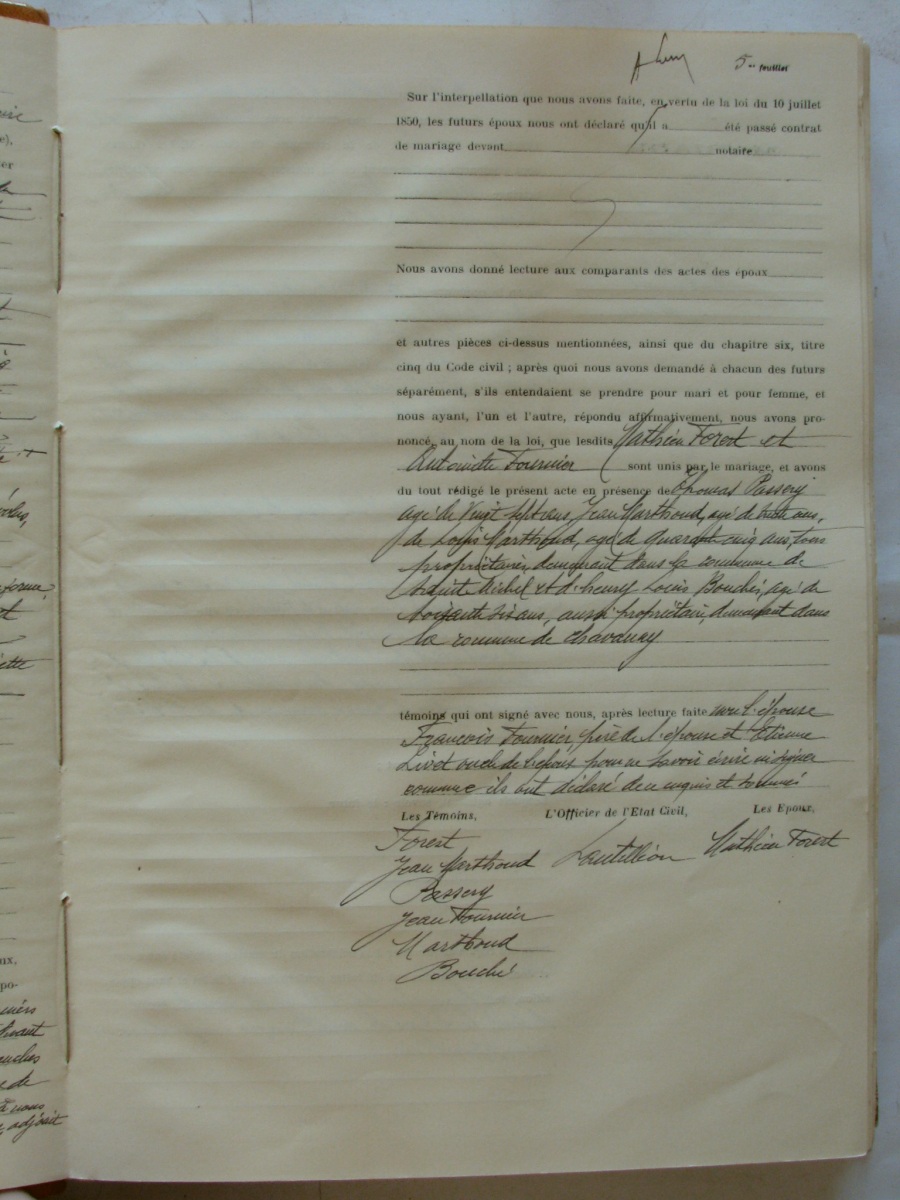 5me feuillet
Sur l'interpellation que nous avons faite, en vertu de la loi du 10 juillet
1850, les futurs époux nous ont déclaré qu'il a été passé contrat
de mariage devant notaire
Nous avons donné lecture aux comparants des actes des époux
et autres pièces ci-dessus mentionnées, ainsi que du chapitre six, titre
cinq du Code civil ; après quoi nous avons demandé à chacun des futurs
séparément, s'ils entendaient se prendre pour mari et pour femme, et
nous ayant, l'un et l'autre, répondu affirmativement, nous avons pro-
noncé, au nom de la loi, que lesdits Mathieu Forest et
Antoinette Fournier sont unis par le mariage, et avons
du tout rédigé le présent acte en présence de Thomas Passery
agé de Vingt sept ans, Jean Marthoud, agé de trente ans,
de Louis Marthoud, agé de quarante cinq ans, tous
propriétaires, demeurant dans la commune de
Saint Michel et d'henry Louis Bouché, agé de
soixante six ans, aussi propriétaire, demeurant dans
la commune de Chavanay
témoins qui ont signé avec nous, après lecture faite non l'épouse
François Fournier, père de l'épouse et Etienne
Livet pour ne savoir écrire ni signer
comme ils ont déclaré de ce requis et sommés
Les Témoins, L'Officier de l'Etat Civil, Les Epoux,
Forest
Jean Marthoud Lantillion Mathieu Forest
Passery
Jean Fournier
Marthoud
Bouché
ier
pour
forme,
po-
de
à nous
adjoint